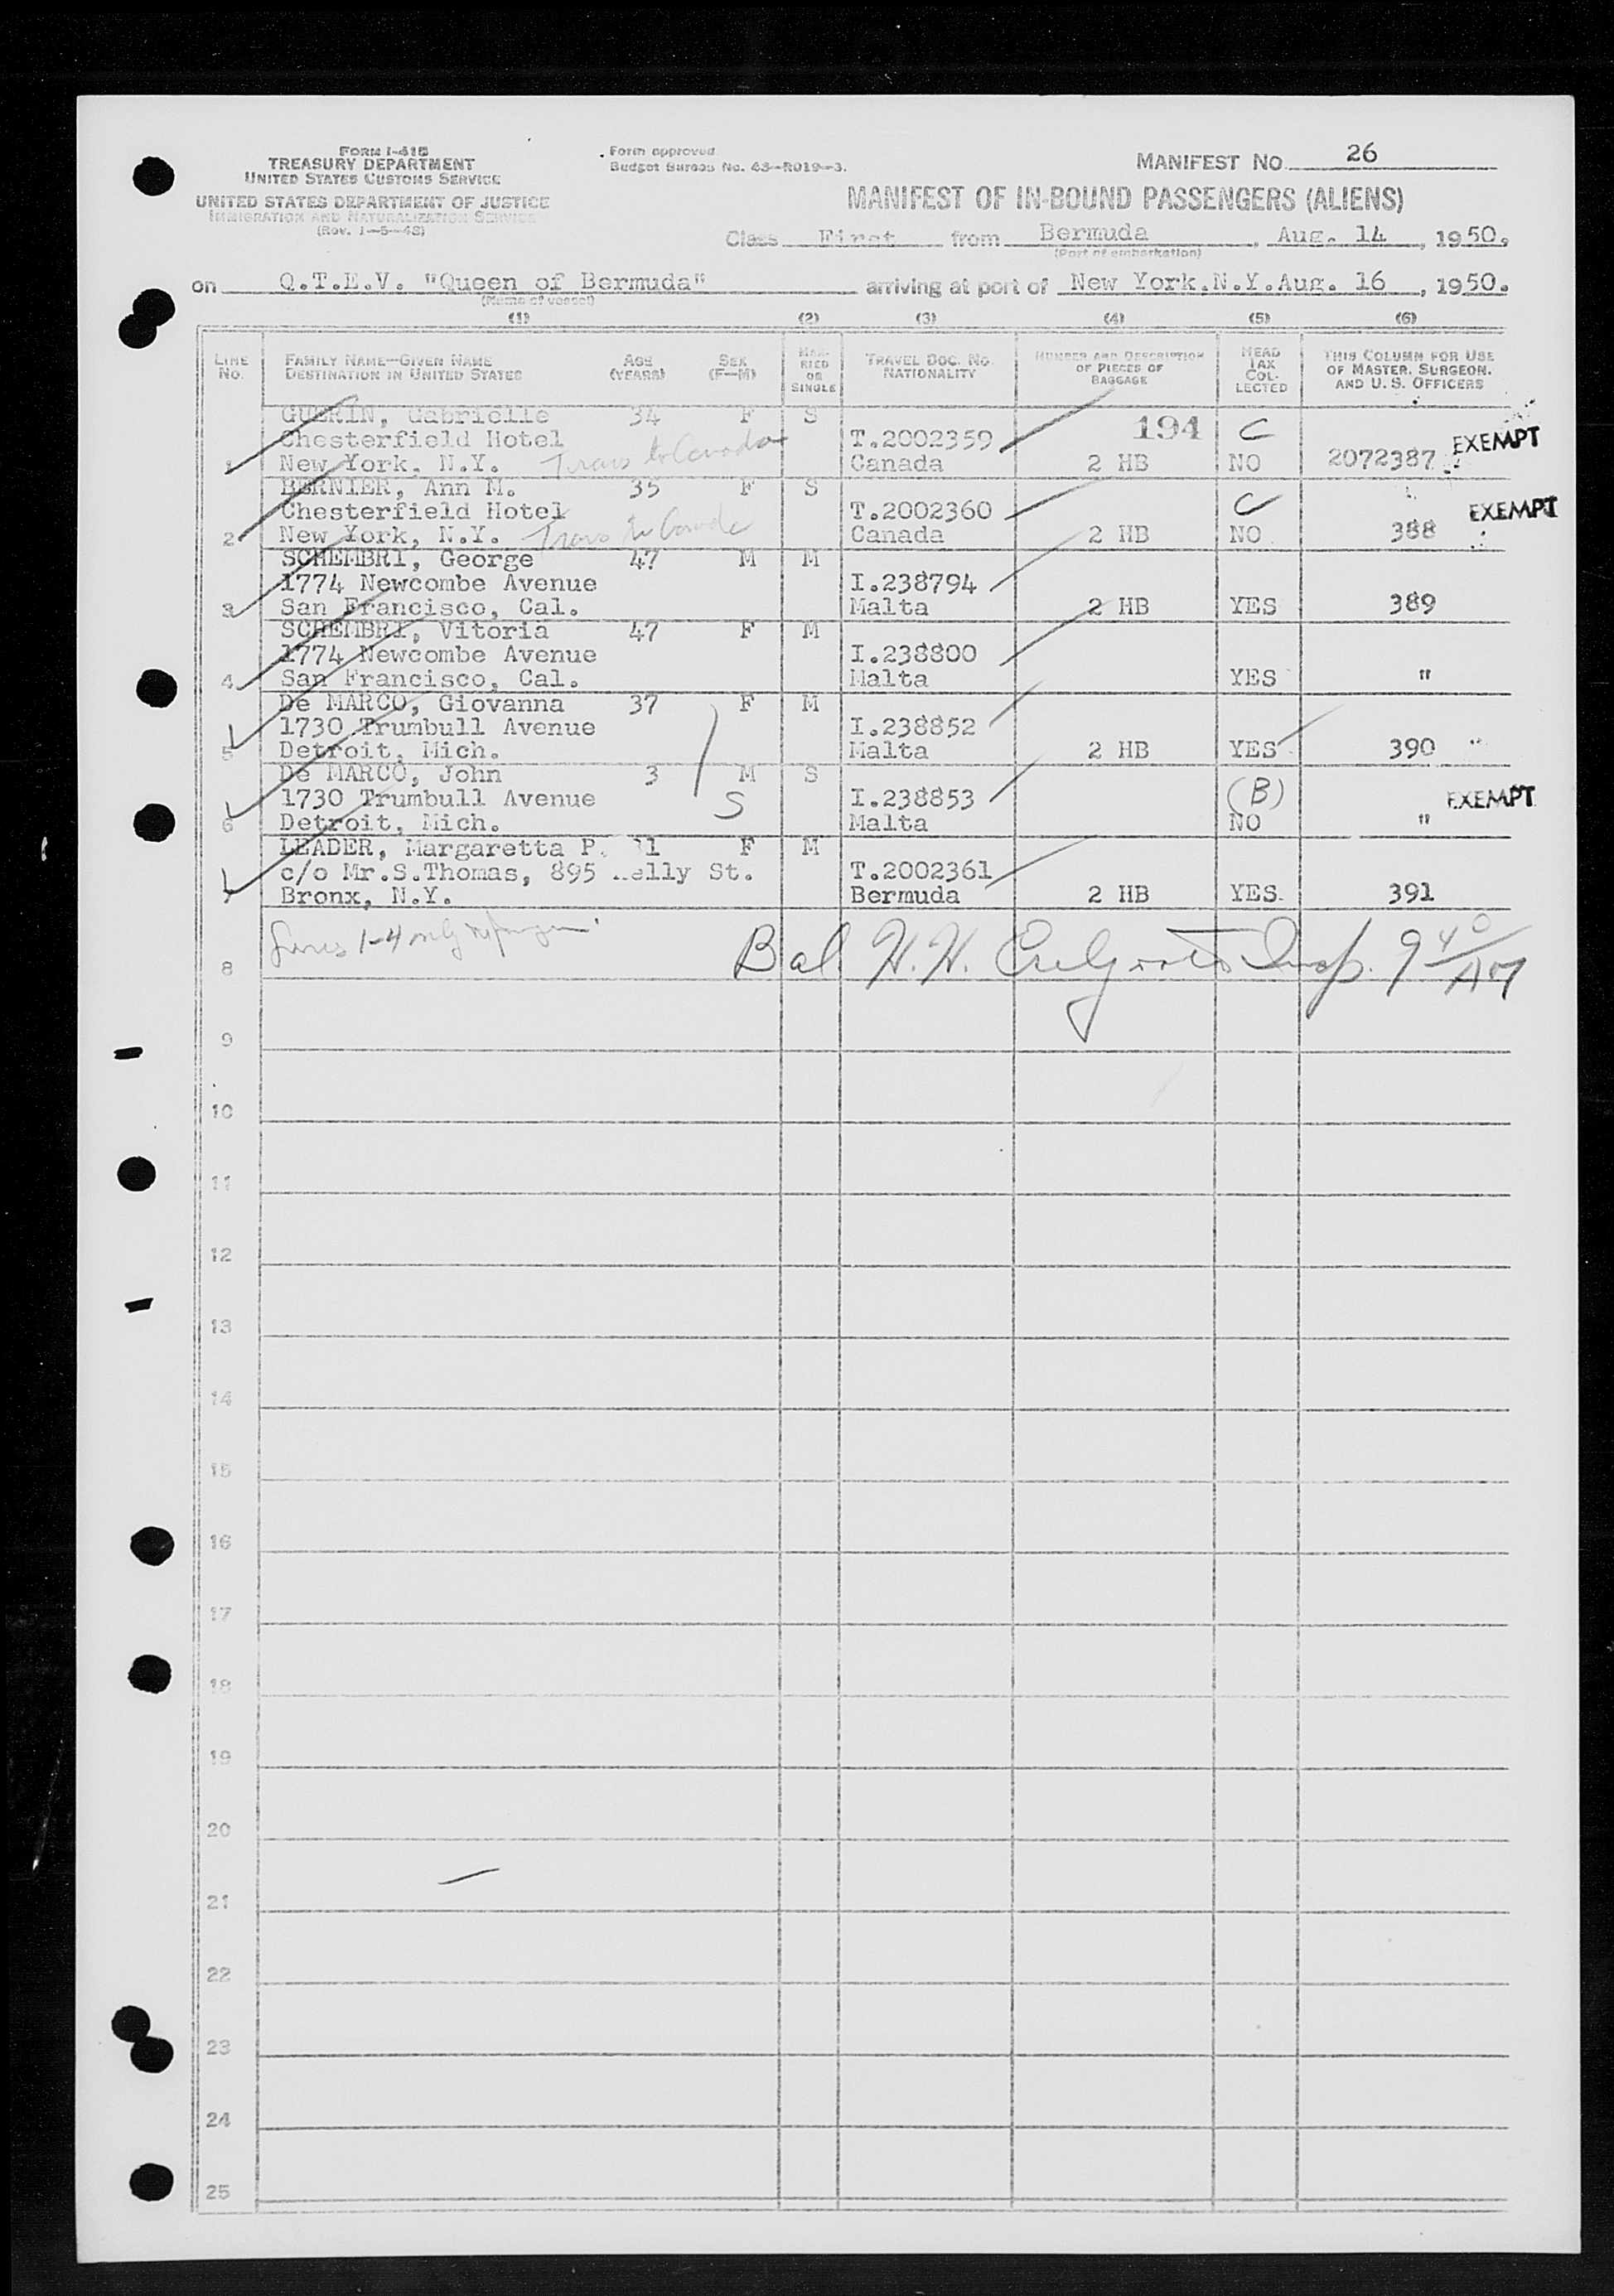 FORM I-415
TREASURY DEPARTMENT
UNITED STATES CUSTOMS SERVICE
UNITED STATES DEPARTMENT OF JUSTICE
IMMIGRATION AND NATURALIZATION SERVICE
(Rev. 1-5-48)
Form approved
Budget Bureau No. 43-R019-3.
MANIFEST NO. 26
MANIFEST OF IN-BOUND PASSENGERS (ALIENS)
Class First from Bermuda, Aug. 14, 1950.
(Port of embarkation)
on Q.T.E.V. "Queen of Bermuda" arriving at port of New York.N.Y.Aug. 16, 1950.
(Name of vessel)
(1) (2) (3) (4) (5) (6)
LINE NO. FAMILY NAME—GIVEN NAME DESTINATION IN UNITED STATES AGE (YEARS) SEX (F—M) MARRIED OR SINGLE TRAVEL DOC. NO. NATIONALITY NUMBER AND DESCRIPTION OF PIECES OF BAGGAGE HEAD TAX COLLECTED THIS COLUMN FOR USE OF MASTER, SURGEON, AND U. S. OFFICERS
GUERIN, Gabrielle 34 F S
Chesterfield Hotel T.2002359 194 C EXEMPT
1 New York, N.Y. Trans to Canada Canada 2 HB NO 2072387
BERNIER, Ann M. 35 F S
Chesterfield Hotel T.2002360 C EXEMPT
2 New York, N.Y. Trans to Canada Canada 2 HB NO 388
SCHEMBRI, George 47 M M
1774 Newcombe Avenue I.238794
3 San Francisco, Cal. Malta 2 HB YES 389
SCHEMBRI, Vitoria 47 F M
1774 Newcombe Avenue I.238800
4 San Francisco, Cal. Malta YES "
De MARCO, Giovanna 37 F M
1730 Trumbull Avenue I.238852
5 Detroit, Mich. Malta 2 HB YES 390
De MARCO, John 3 M S
1730 Trumbull Avenue S I.238853 (B) EXEMPT
6 Detroit, Mich. Malta NO "
LEADER, Margaretta P. F M
c/o Mr.S.Thomas, 895 St. T.2002361
7 Bronx, N.Y. Bermuda 2 HB YES 391
Lines 1-4 only
8 Bal. H. H. Insp. 9 40 AM
9
10
11
12
13
14
15
16
17
18
19
20
21
22
23
24
25